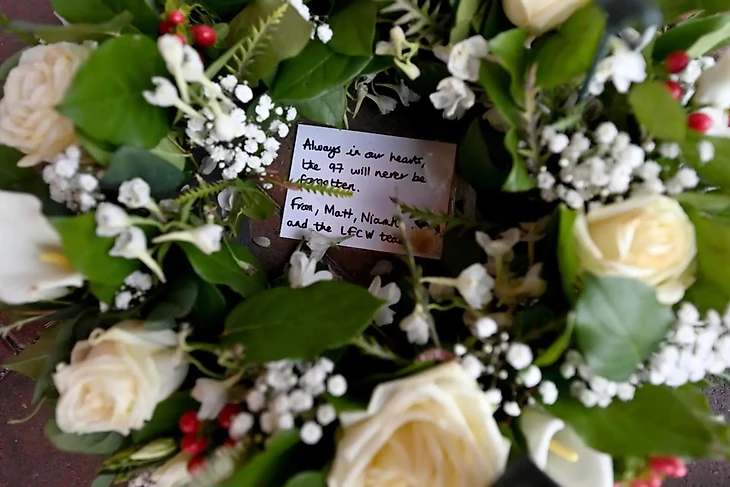 Always in our hearts,
the 97 will never be
forgotten.
From, Matt, Niamh
and the LFCW team